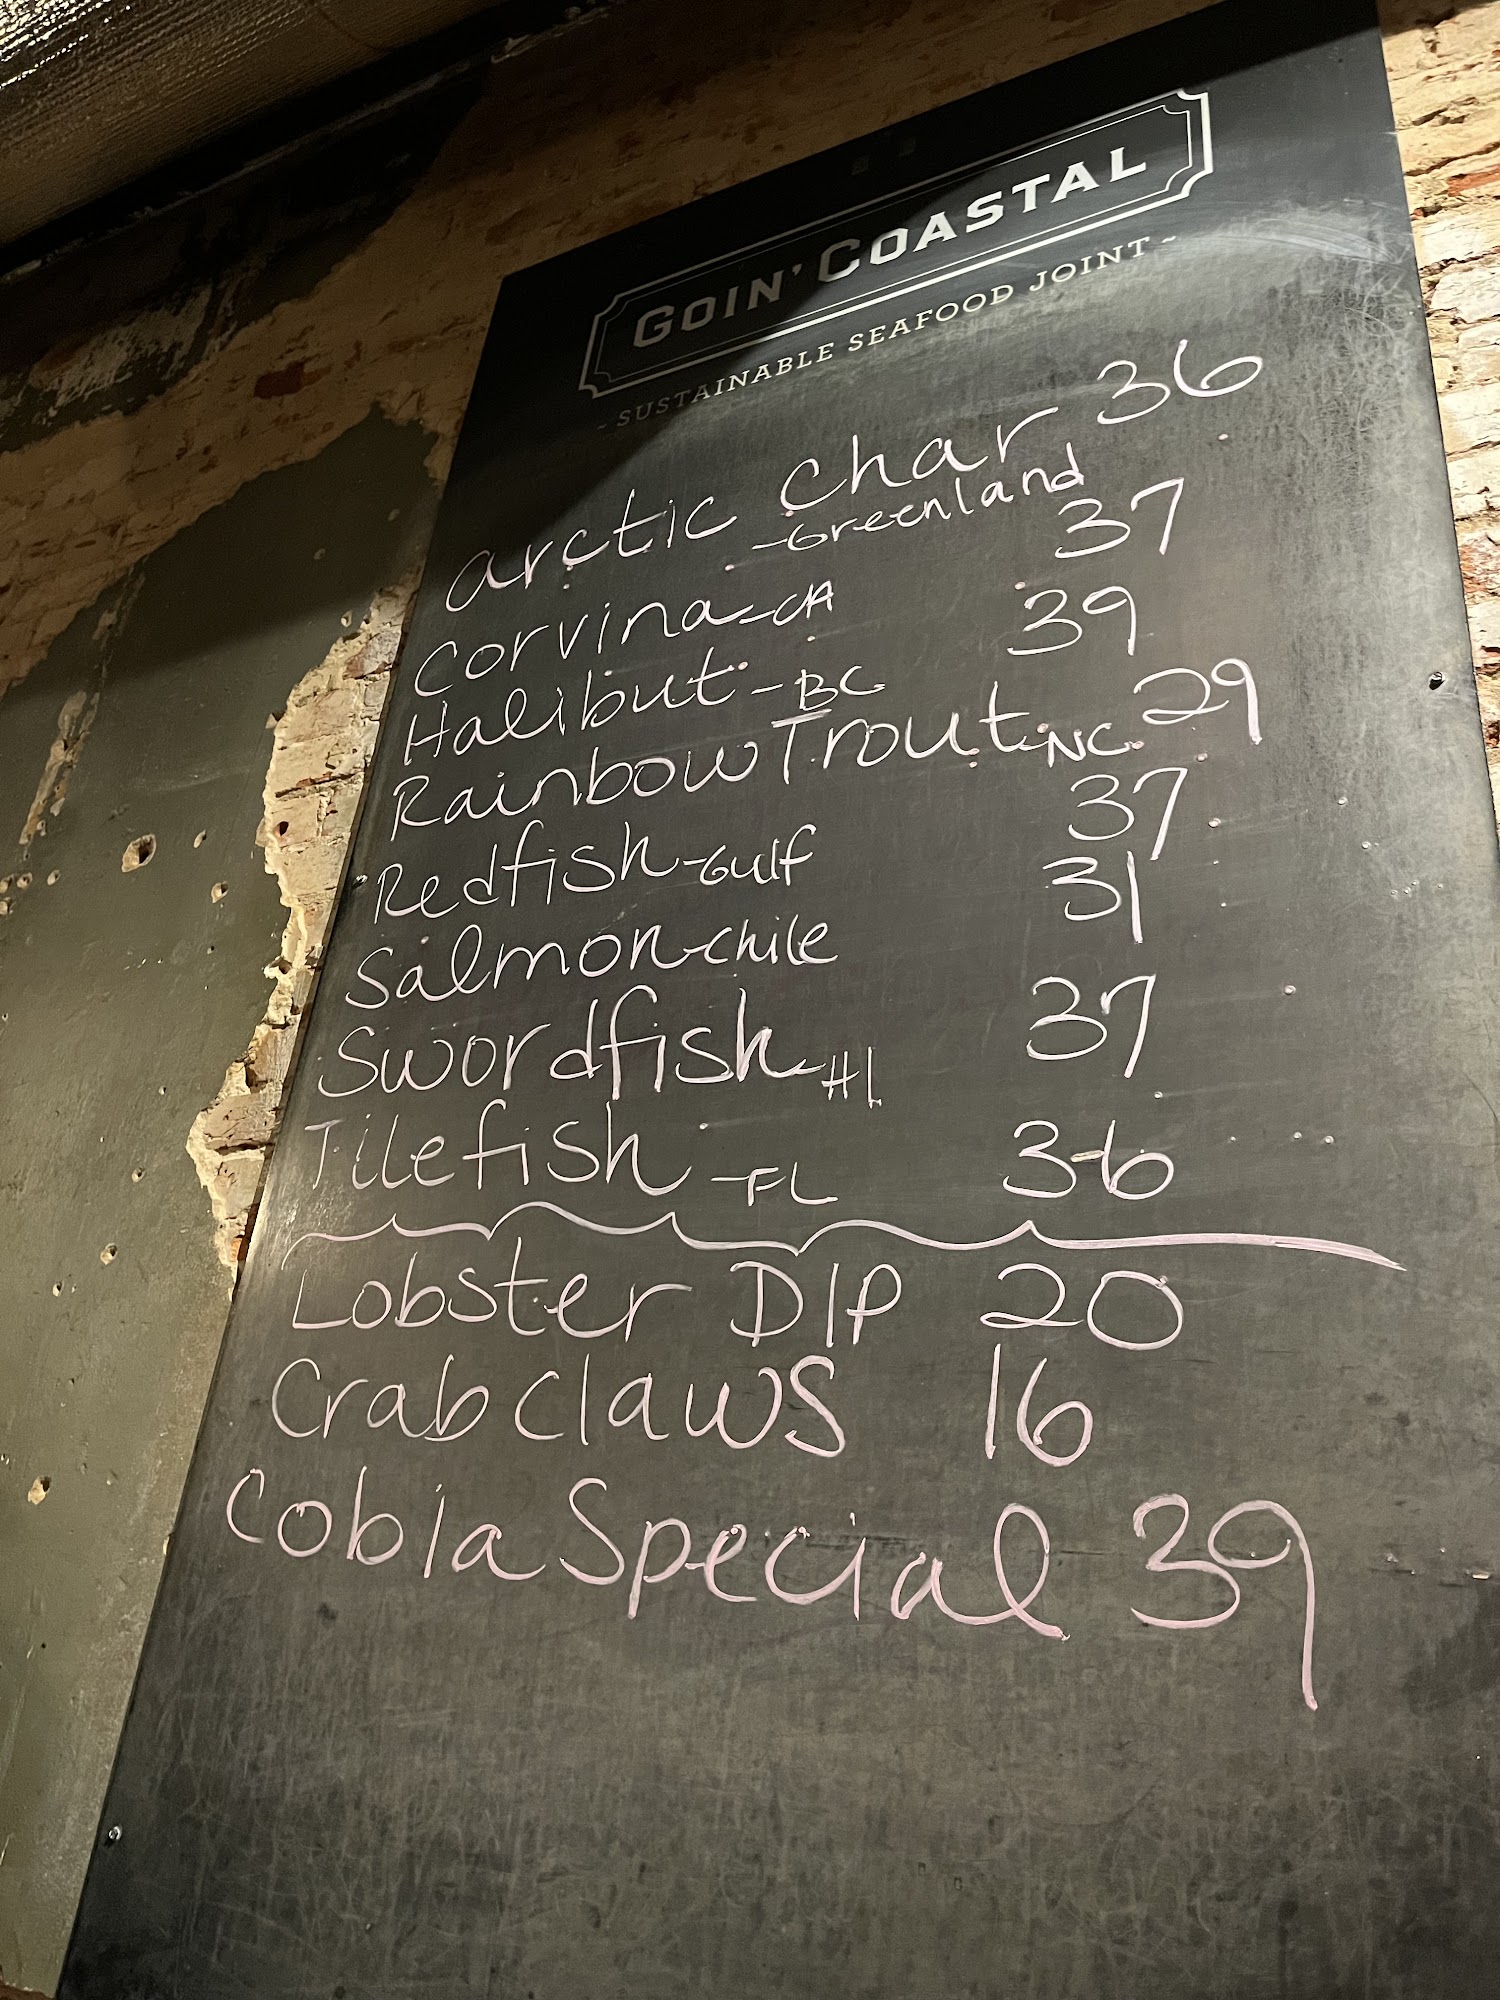 GOIN' COASTAL
~ SUSTAINABLE SEAFOOD JOINT ~
arctic char 36
-Greenland
Corvina-CA 37
Halibut-BC 39
Rainbow Trout-NC 29
Redfish-Gulf 37
Salmon-Chile 31
Swordfish-HI 37
Tilefish-FL 36
Lobster DIP 20
Crab claws 16
Cobia Special 39